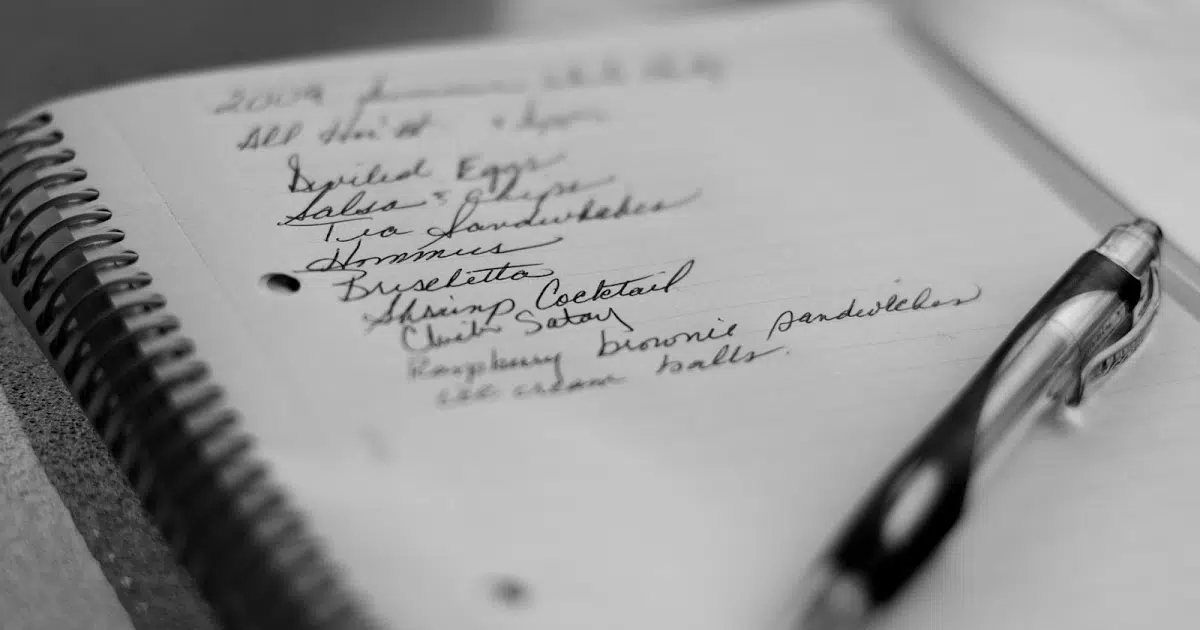 2009
All
Deviled Eggs
Salsa & Chips
Tea Sandwhiches
Hommus
Bruschetta
Shrimp Cocktail
Satay
Raspberry brownie sandwiches
ice cream balls.